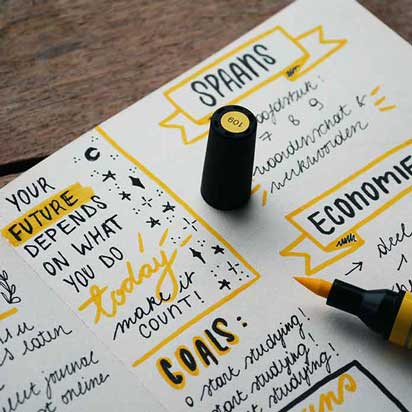 SPAANS
hoofdstuk!
7 8 9
woordenschat &
werkwoorden
109
YOUR
FUTURE
DEPENDS
ON WHAT
YOU DO
today
make it
COUNT!
ECONOMIE
→ deel
GOALS:
o start studying!
start studying!
start studying!
later
journal
online